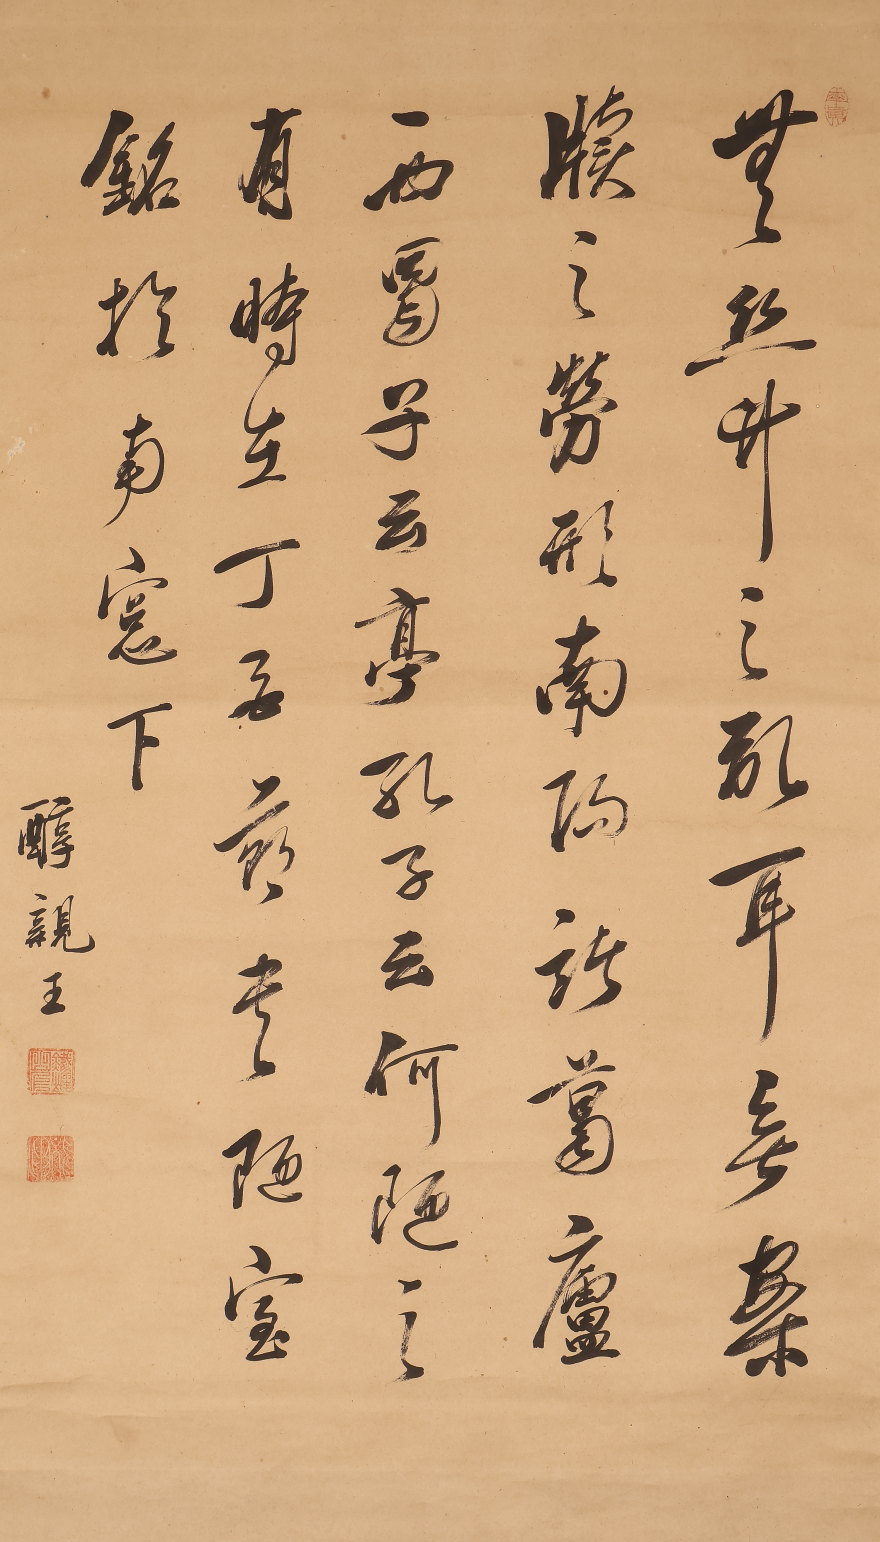 無丝竹之亂耳無案
牘之勞形南陽諸葛廬
西蜀子云亭孔子云何陋之
有時在丁亥節書陋室
銘於南窓下
醇親王